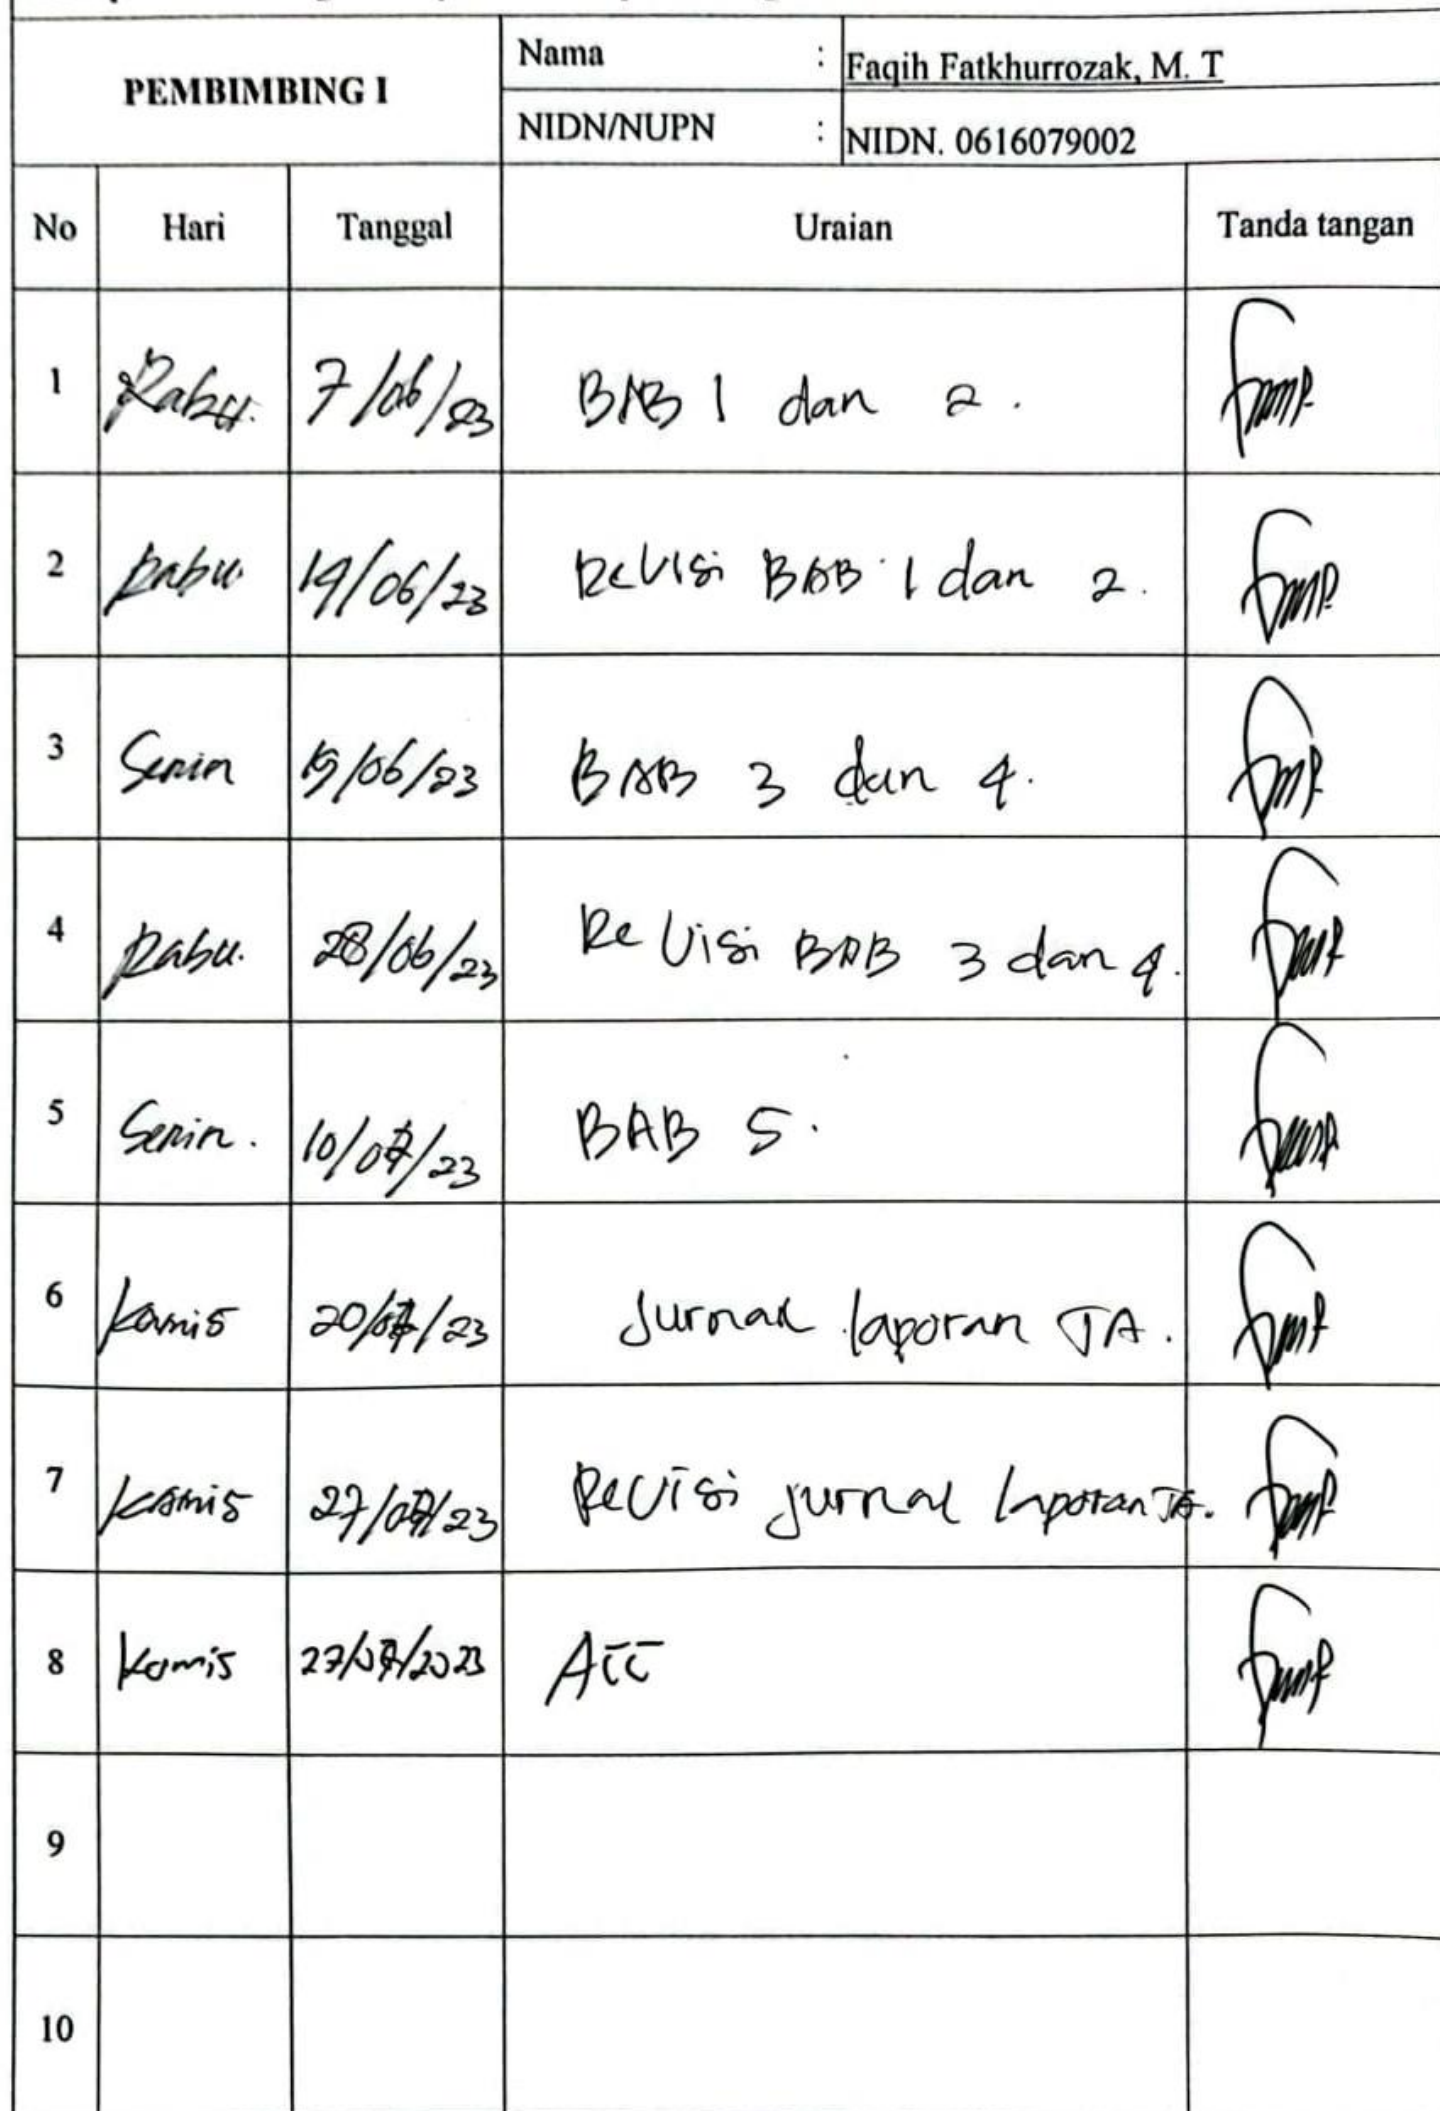 PEMBIMBING I
Nama : Faqih Fatkhurrozak, M. T
NIDN/NUPN : NIDN. 0616079002
No Hari Tanggal Uraian Tanda tangan
1 Rabu. 7/06/23 BAB 1 dan 2.
2 Rabu. 14/06/23 Revisi BAB 1 dan 2.
3 Senin 19/06/23 BAB 3 dan 4.
4 Rabu. 28/06/23 Revisi BAB 3 dan 4.
5 Senin. 10/07/23 BAB 5.
6 Kamis 20/07/23 Jurnal laporan TA.
7 Kamis 27/07/23 Revisi jurnal laporan TA.
8 Kamis 27/07/2023 ACC
9
10